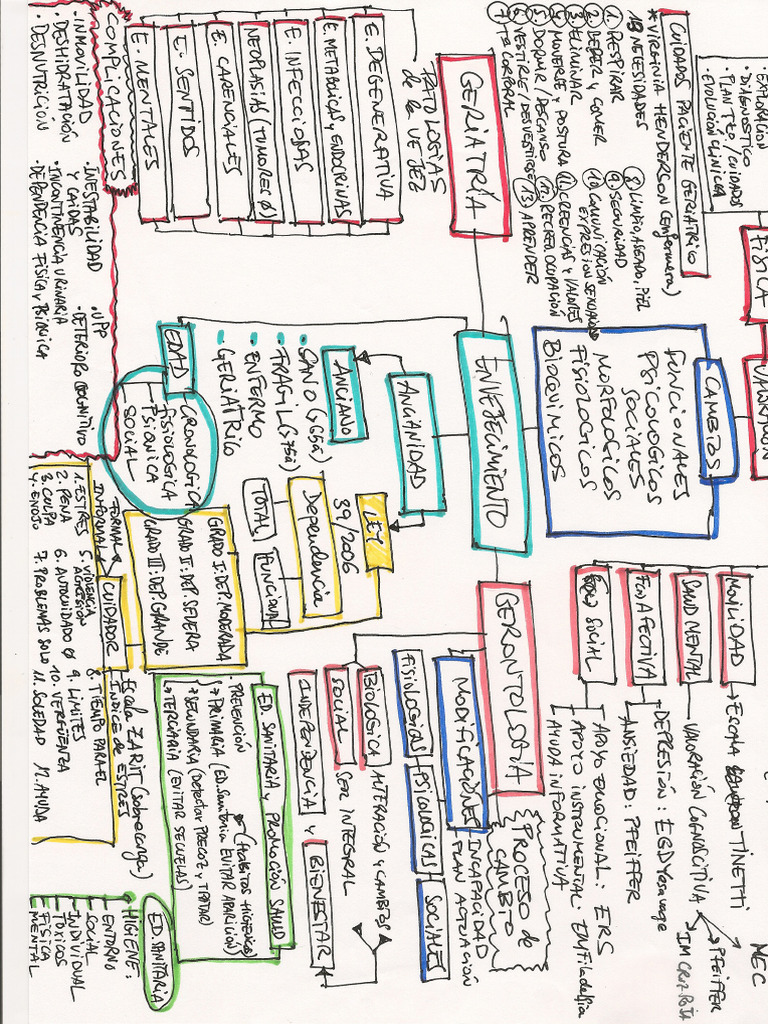 EXPLORACIÓN
· DIAGNOSTICO
· PLAN TTO / CUIDADOS
· EVOLUCIÓN CLINICA
CUIDADOS PACIENTE GERIATRICO
* VIRGINIA HENDERSON (enfermera)
13 NECESIDADES
1. RESPIRAR
2. BEBER y COMER
3. ELIMINAR
4. MOVERSE y POSTURA
5. DORMIR / DESCANSO
6. VESTIRSE / DESVESTIRSE
7. Tª CORPORAL
8. LIMPIO, ASEADO, PIEL
9. SEGURIDAD
10. COMUNICACIÓN
EXPRESIÓN SEXUALIDAD
11. CREENCIAS y VALORES
12. RECREO, OCUPACIÓN
13. APRENDER
FISICA
VALORACIÓN
GERIATRÍA
PATOLOGIAS
de la VEJEZ
E. DEGENERATIVA
E. METABOLICAS y ENDOCRINAS
E. INFECCIOSAS
NEOPLASIAS (TUMORES Ø)
E. CARENCIALES
E. SENTIDOS
E. MENTALES
COMPLICACIONES
· INMOVILIDAD
· DESHIDRATACIÓN
· DESNUTRICIÓN
· INESTABILIDAD
Y CAIDAS
· INCONTINENCIA URINARIA
· DEPENDENCIA FISICA y PSIQUICA
· UPP
· DETERIORO COGNITIVO
CAMBIOS
FUNCIONALES
PSICOLOGICOS
SOCIALES
MORFOLOGICOS
FISIOLOGICOS
BIOQUIMICOS
ENVEJECIMIENTO
ANCIANIDAD
ANCIANO
· SANO (>65a)
· FRAGIL (>75a)
· ENFERMO
· GERIATRICO
EDAD
CRONOLOGICA
FISIOLOGICA
PSIQUICA
SOCIAL
LEY
39/2006
Dependencia
TOTAL
FUNCIONAL
GRADO I: DEP. MODERADA
GRAD II: DEP. SEVERA
GRAD III: DEP. GRANDE
CUIDADOR
FORMAL
INFORMAL
Escala ZARIT (sobrecarga)
INDICE de ESTRES
1. ESTRES
2. PENA
3. CULPA
4. ENOJO
5. VIOLENCIA
AGRESIÓN
6. AUTOCUIDADO Ø
7. PROBLEMAS SOLO
8. TIEMPO PARA EL
9. LIMITES
10. VERGÜENZA
11. SOLEDAD
12. AYUDA
MEC
MOVILIDAD
→ ESCALA TINETTI
SALUD MENTAL
→ VALORACIÓN COGNOSCITIVA
PFEIFFER
IM CRUZ ROJA
FON AFECTIVA
→ DEPRESIÓN: EGD Yesavage
ANSIEDAD: PFEIFFER
SOCIAL
APOYO EMOCIONAL: ERS
APOYO INSTRUMENTAL: EMFiladelfia
AYUDA INFORMATIVA
GERONTOLOGÍA
PROCESO de
CAMBIO
MODIFICACIONES
INCAPACIDAD
PLAN ACTUACIÓN
FISIOLÓGICAS
PSICOLÓGICAS
SOCIALES
BIOLOGICA
ALTERACIÓN y CAMBIOS
SOCIAL
SER INTEGRAL
INDEPENDENCIA y BIENESTAR
ED. SANITARIA y PROMOCIÓN SALUD
· PREVENCIÓN
(HABITOS HIGIENICOS)
→ PRIMARIA (ED. Sanitaria EVITAR APARICIÓN)
→ SECUNDARIA (Detección PRECOZ y TRATAR)
→ TERCIARIA (EVITAR SECUELAS)
ED. SANITARIA
HIGIENE:
ENTORNO
SOCIAL
INDIVIDUAL
TOXICOS
FISICA
MENTAL